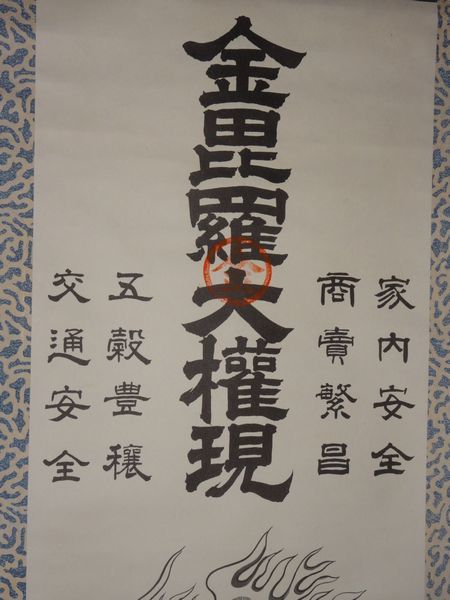 家内安全
商賣繁昌
金毘羅大權現
五穀豊穣
交通安全